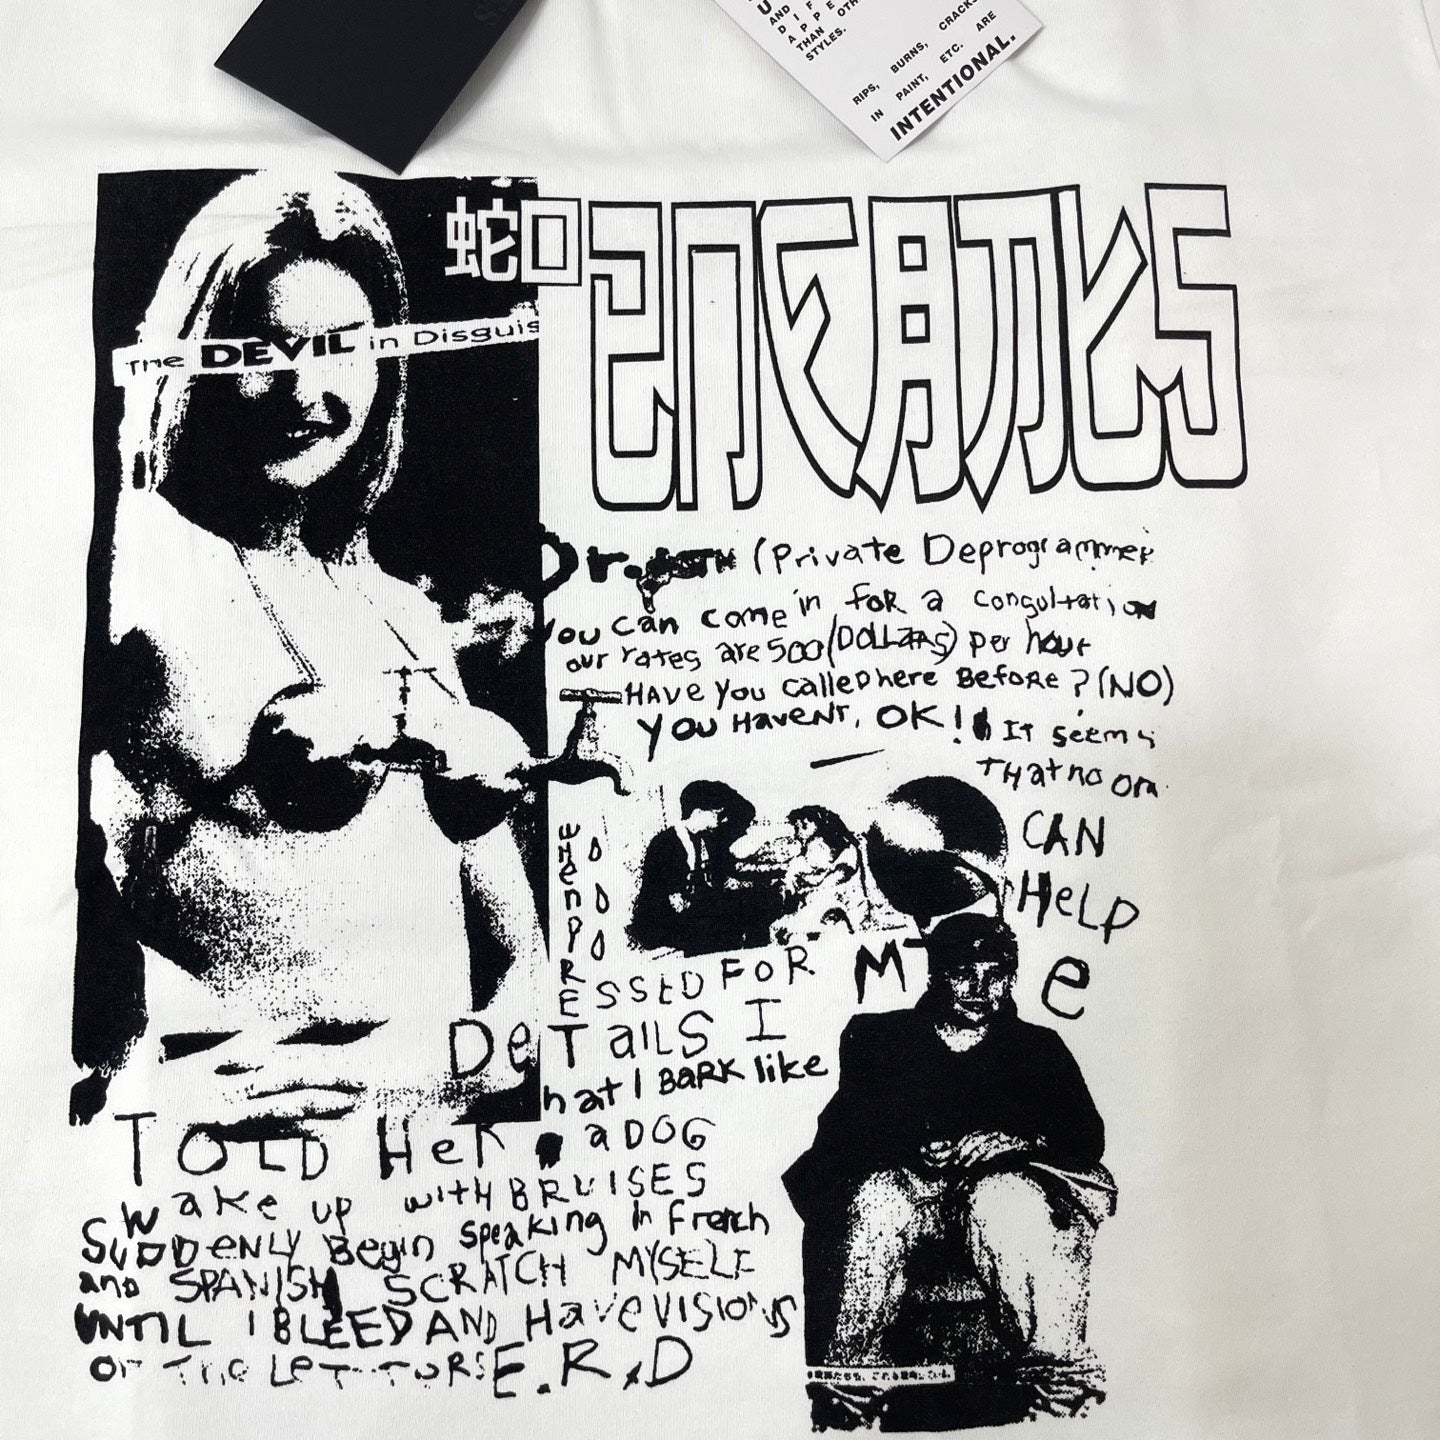 AND
DIF
APPE
THAN OTH
STYLES.
RIPS, BURNS, CRACKS
IN PAINT, ETC. ARE
INTENTIONAL.
蛇口
The DEVIL in Disguis
Dr. (Private Deprogrammer
you can come in for a consultation
our rates are 500 (DOLLARS) per hour
HAVE you called here Before? (NO)
you HAVENT, OK! It seems
THAT no one
CAN
HELP
Me
WHEN PRESSED FOR
DeTaILS I
TOLD Her
hat I BARK like
a DOG
wake up with BRUISES
SUDDENLY Begin speaking in French
and SPANISH SCRATCH MYSELF
UNTIL I BLEED AND Have VISIONS
OF THe LeTTeRS E.R.D